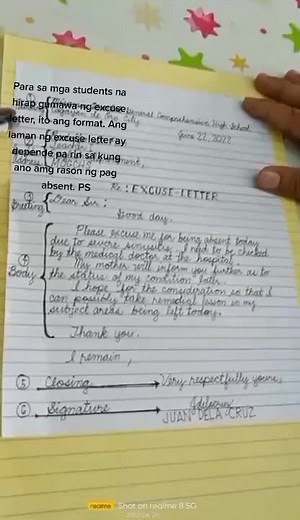 Para sa mga students na
hirap gumawa ng excuse
letter, ito ang format. Ang
laman ng excuse letter ay
depende pa rin sa kung
ano ang rason ng pag
absent. PS
General Comprehensive High School
June 22, 2022
Re: EXCUSE-LETTER
③ Greeting
Dear Sir:
Good day.
④ Body
Please excuse me for being absent today
due to severe sinusitis. I need to be checked
by the medical doctor at the hospital.
My mother will inform you further as to
the status of my condition later.
I hope for the consideration so that I
can possibly take remedial lesson in my
subject areas being left today.
Thank you.
I remain,
⑤ Closing
Very respectfully yours,
⑥ Signature
JUAN DELA CRUZ
realme Shot on realme 8 5G